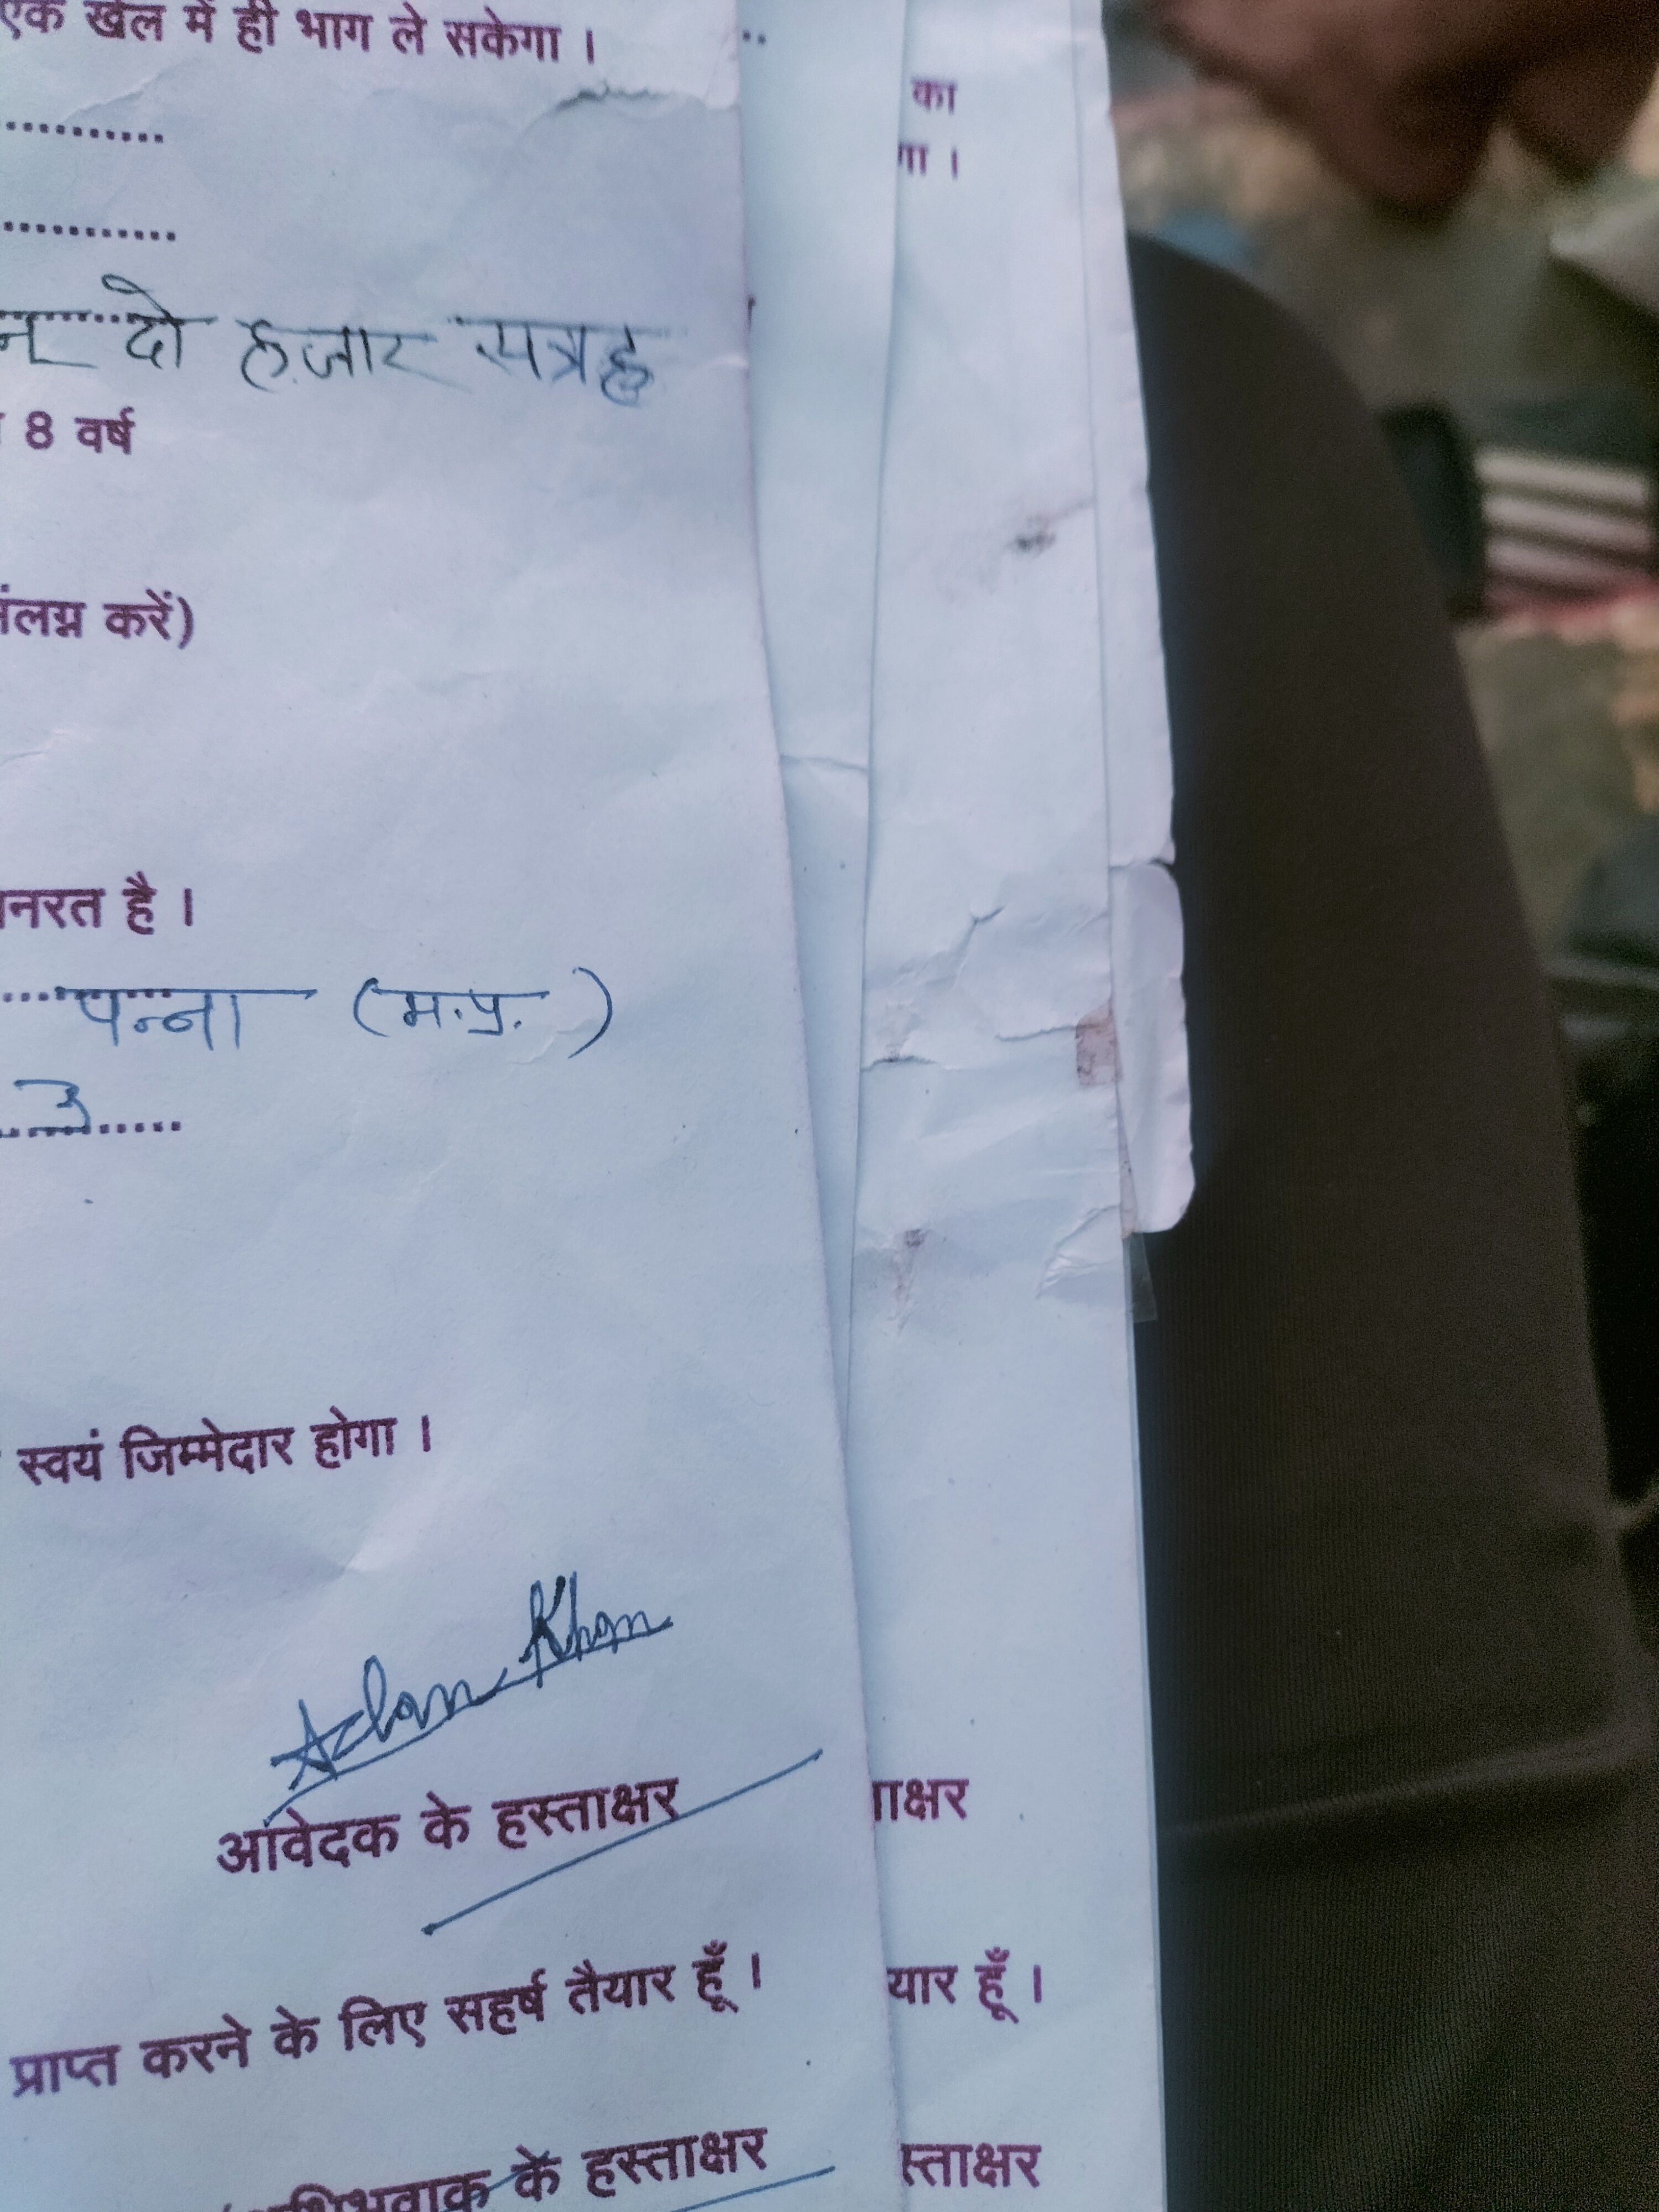 एक खेल में ही भाग ले सकेगा ।
का
गा ।
दो हजार सत्रह
8 वर्ष
संलग्न करें)
है ।
पन्ना (म.प्र.)
3
स्वयं जिम्मेदार होगा ।
Khan
आवेदक के हस्ताक्षर
ाक्षर
प्राप्त करने के लिए सहर्ष तैयार हूँ ।
यार हूँ ।
के हस्ताक्षर
स्ताक्षर